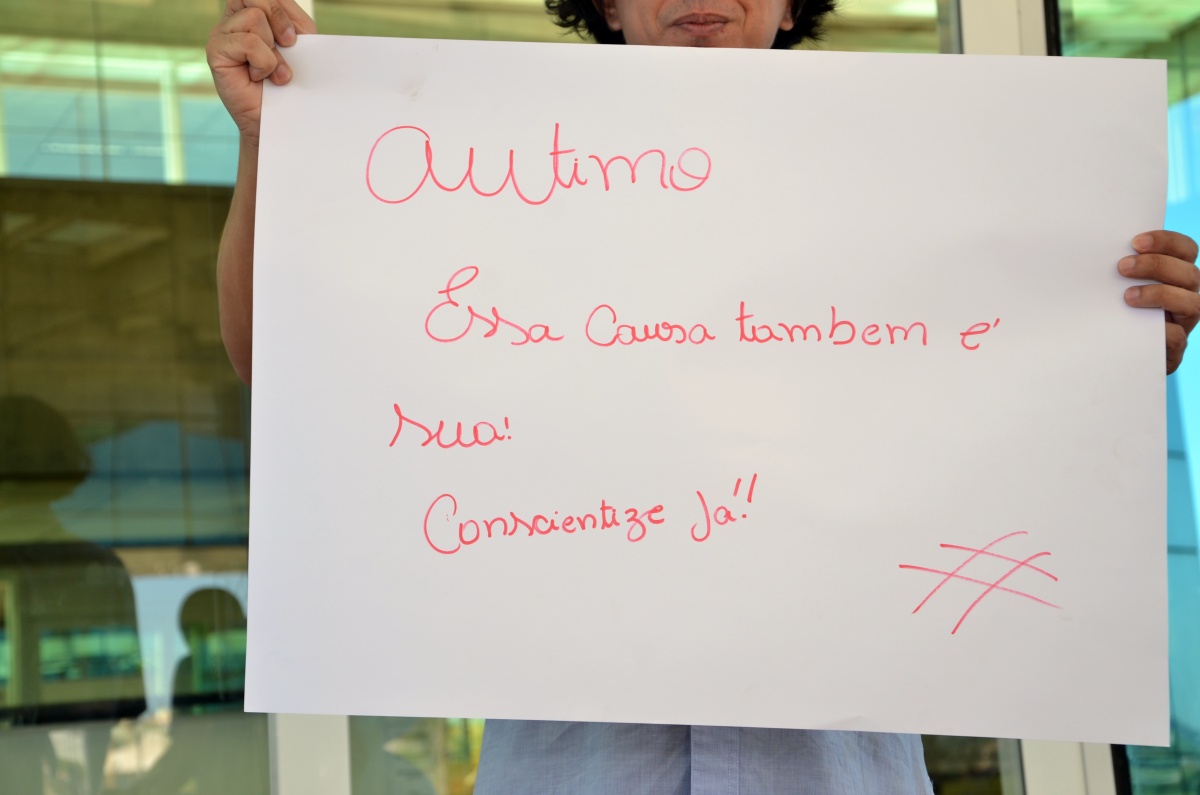 Autimo
Essa Causa tambem é
sua!
Conscientize Já!!
#